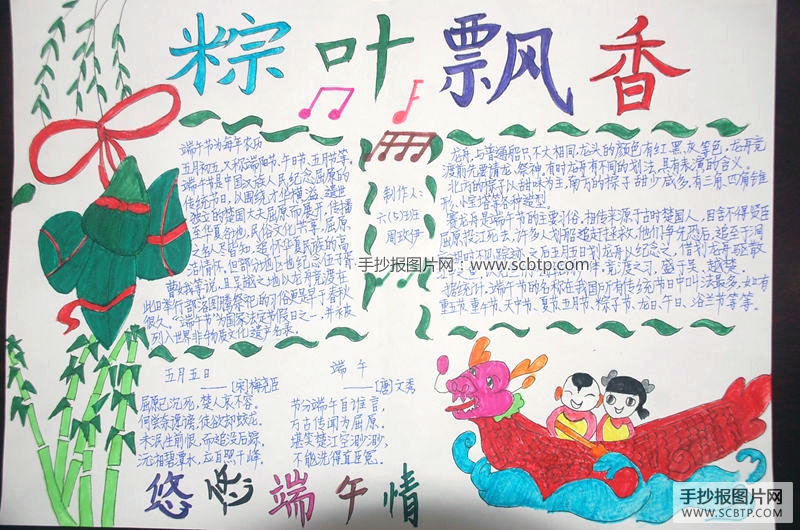 粽叶飘香
端午节为每年农历
五月初五,又称端阳节,午日节、五月节等。
端午节是中国汉族人民纪念屈原的
传统节日,以围绕才华横溢、遗世
独立的楚国大夫屈原而展开,传播
至华夏各地,民俗文化共享,屈原
之名人尽皆知,追怀华夏民族的高
洁情怀。但部分地区也有纪念伍子胥、
曹娥等说
此日举行部落图腾祭祀的习俗更是早于春秋
很久。"端午节"为国家法定节假日之一,并被
列入世界非物质文化遗产名录。
制作人:
六(5)班
龙舟与普通船只不大相同,龙头的颜色有红、黑、灰等色,龙舟竞
渡前先要请龙、祭神,有的龙舟有不同的划法,具有表演的含义。
北方的粽子以甜味为主,南方的粽子甜少咸多,有三角、四角锥
形、小宝塔等各种造型。
赛龙舟是端午节的主要习俗,相传来源于古时楚国人,因舍不得贤臣
屈原投江死去,许多人划船追赶拯救,他们争先恐后,追至于洞
庭湖时不见踪迹,之后五月五日划龙舟以纪念之,借划龙舟驱散
竞渡之习,盛于吴、越、楚。
据统计,端午节的名称在我国所有传统节日中叫法最多,如有
重五节、重午节、天中节、夏节、五月节、粽子节、龙日、午日、浴兰节等等。
手抄报图片网:www.scbtp.com
五月五日
——[宋]梅尧臣
屈原已沉死,楚人哀不容。
何尝奈谗谤,徒欲却蛟龙。
未泯生前恨,而追没后踪。
沅湘碧潭水,应自照千峰。
端午
——[唐]文秀
节分端午自谁言,
万古传闻为屈原。
堪笑楚江空渺渺,
不能洗得直臣冤。
悠悠端午情
手抄报图片网
WWW.SCBTP.COM